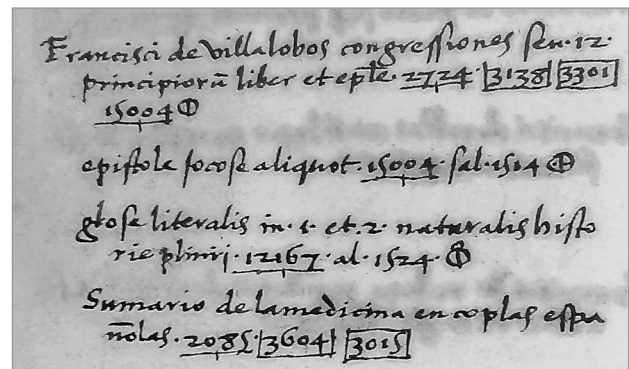 Francisci de villalobos congressiones seu .12.
principiorū liber et ep̄le. 2724. 3138 3301
15004 ⊕
epistole iocose aliquot. 15004. sal. 1514 ⊕
glose literalis in .1. et .2. naturalis histo
rie plinij. 12167. al. 1524. ⊕
Sumario de la medicina en coplas espa
n̄olas. 2085. 3604 3015